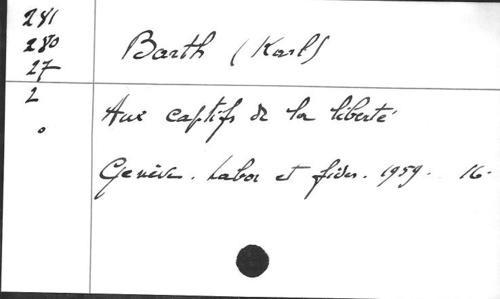 281
280
27
2
°
Barth (Karl)
Aux captifs de la liberté
Genève. Labor et fides. 1959. 16-